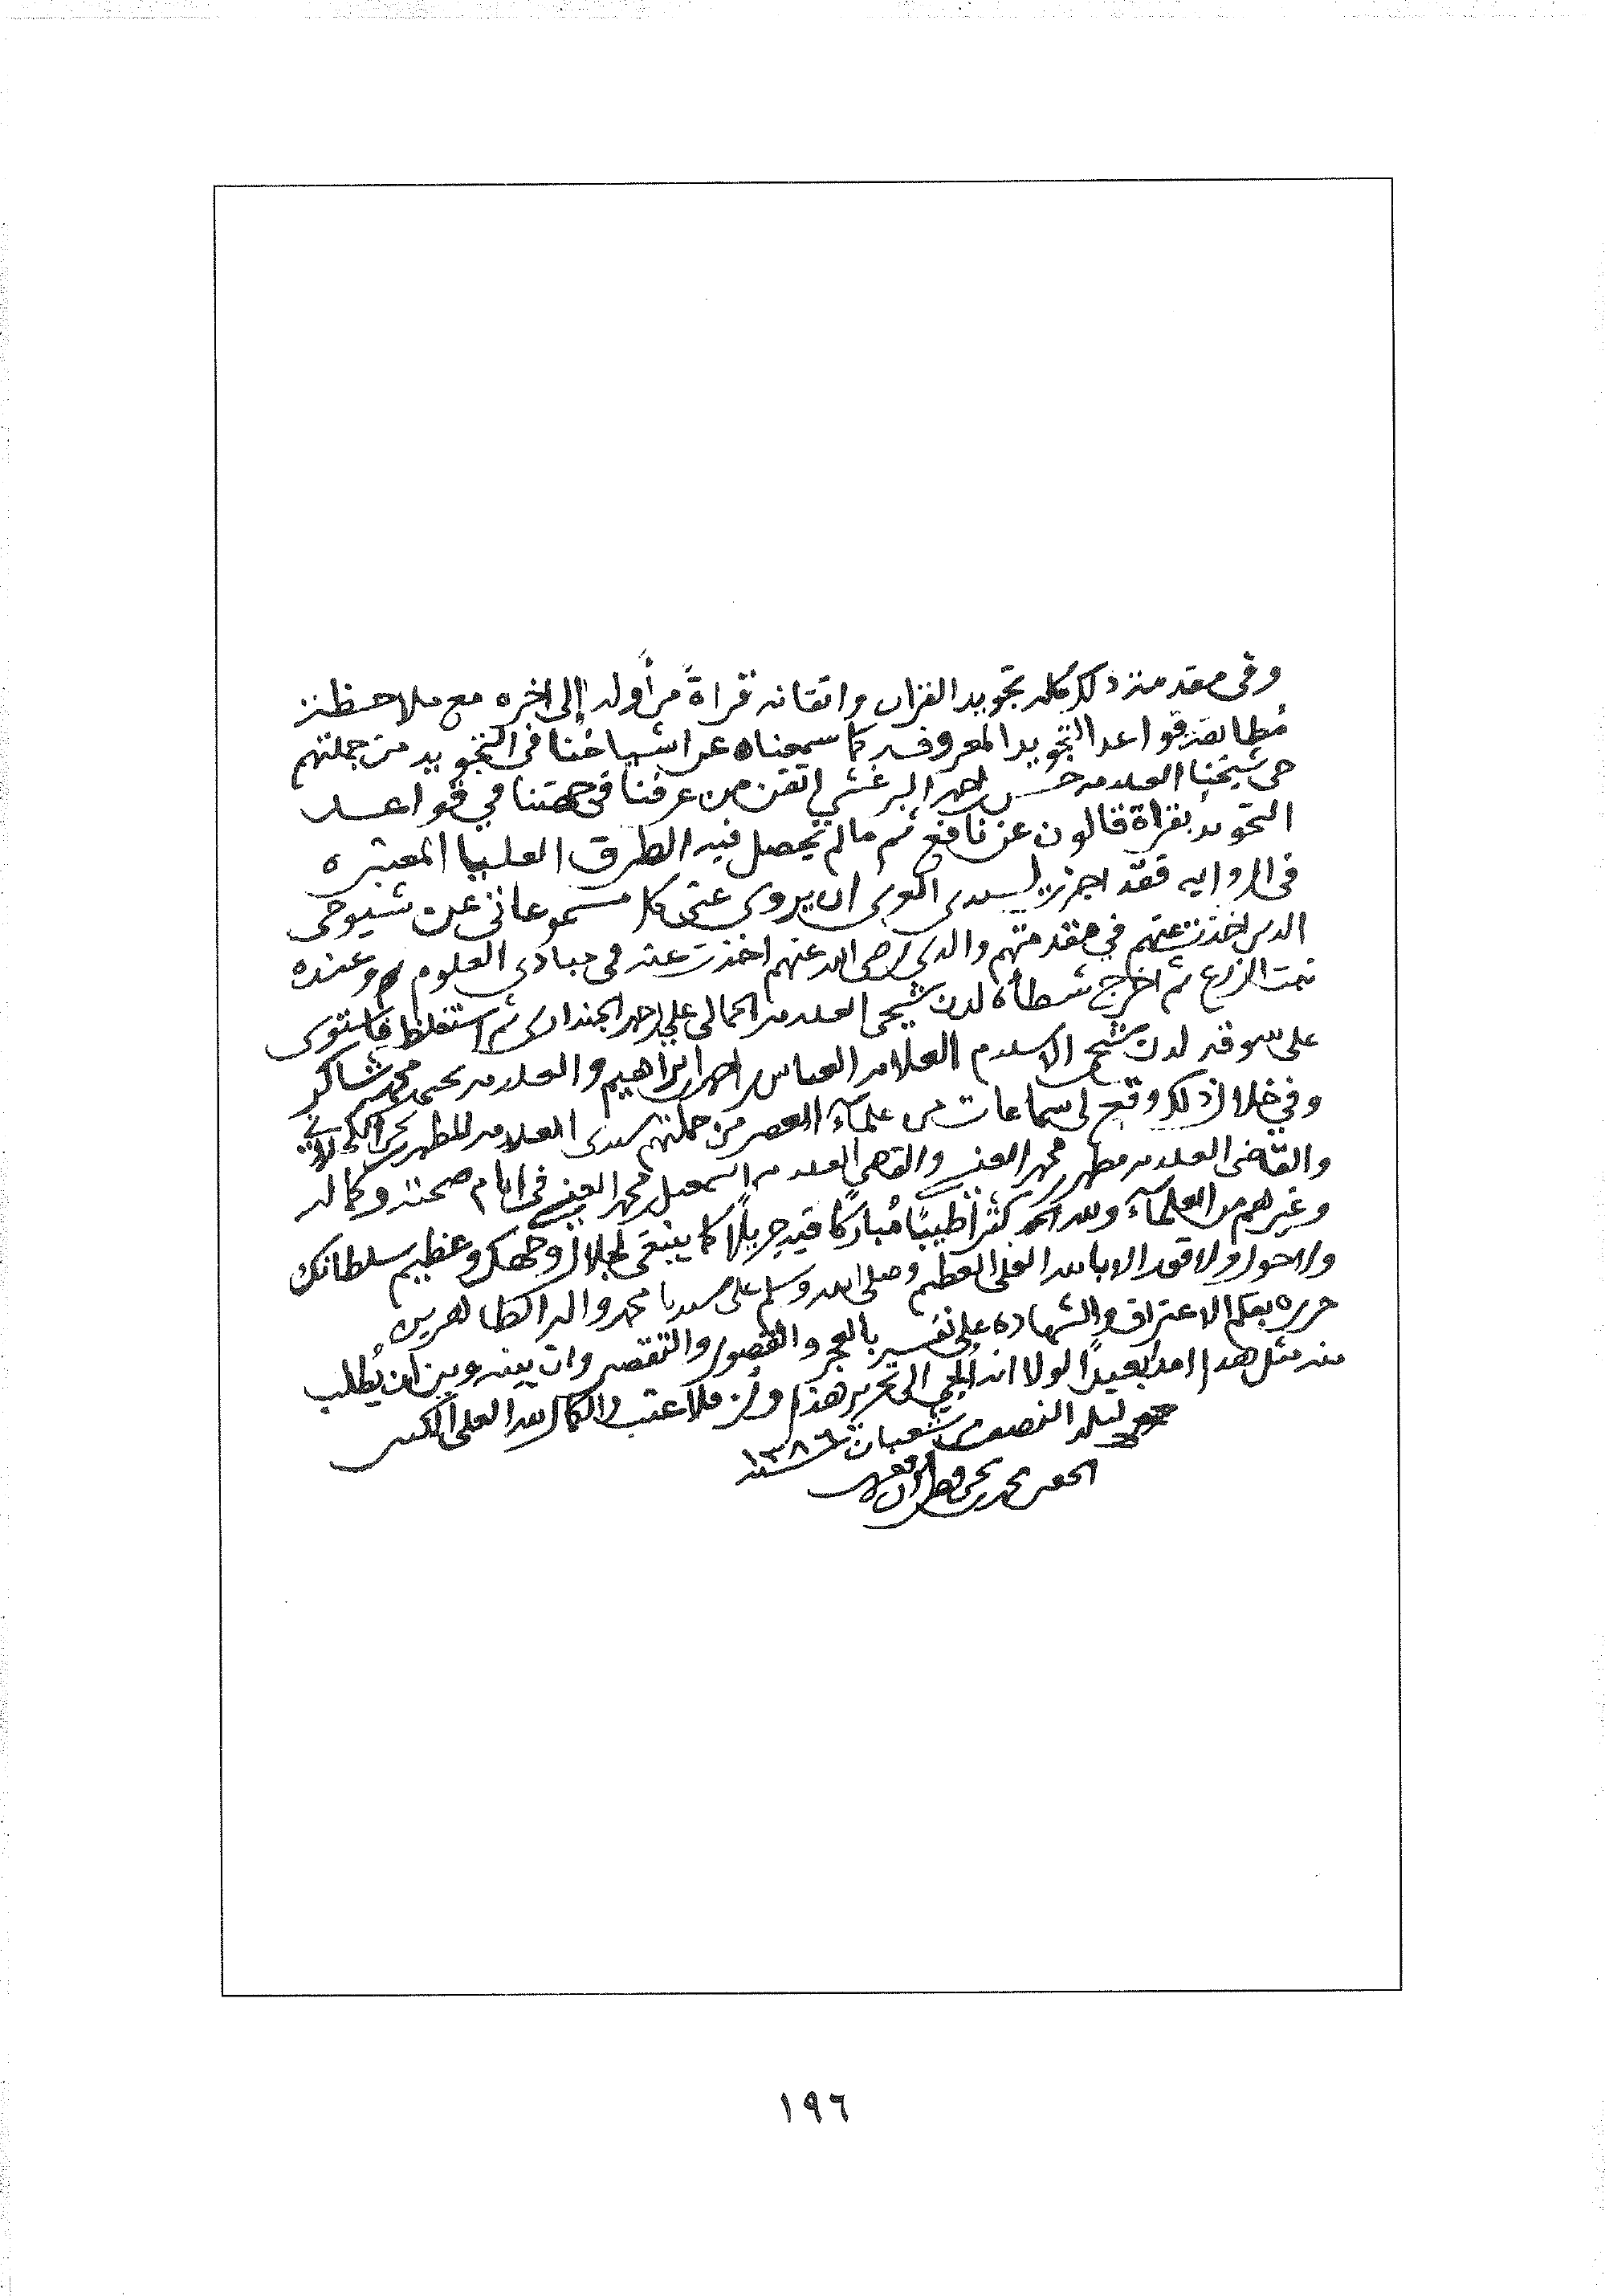 وفى مقدمة ذلك كله تجويد القران واتقانه قراةً من أوله إلى اخره مع ملاحظة
مُطابقة قواعد التجويد المعروفه كما سمعناه عن اشياخنا فى التجويد من جملتهم
حى شيخنا العلامه حسن احمد البرغشي اتقن من عرفنا فى جهتنا في قواعد
التجويد بقراة قالون عن نافع ثم مالم يحصل فيه الطرق العليا المعتبره
فى الروايه فقد اجزت لسيدى ان يروى عنى كل مسموعاتي عن شيوخى
الذين اخذت عنهم في مقدمتهم والدى رضى الله عنهم اخذت عنه فى مبادى العلوم وعنده
نبت الزرع ثم اخرج شطأه لدن شيخى العلامه الجمالى علي احمد الجندارى ثم استغلظ فاستوى
على سوقه لدن شيخ الاسلام العلامه العباس احمد ابراهيم والعلامه يحيى محمد شاكر
وفي خلال ذلك وقع لى سماعات من علمآء العصر من جملتهم سيدى العلامه المطهر يحيى
والقاضى العلامه مطهر محمد والقاضي العلامه اسمعيل محمد فى ايام صحته وكماله
وغيرهم من العلمآء ولله الحمد كثيرًا طيبًا مُباركًا فيه جزيلًا كما ينبغى لجلال وجهك وعظيم سلطانك
ولا حول ولا قوه الا بالله العلى العظيم وصلى الله وسلم على سيدنا محمد واله الطاهرين
حرره بقلم الاعتراف والشهاده على نفسه بالعجز والقصور والتقصير وان بينه وبين ان يُطلب
منه مثل هذا امدًا بعيدًا لولا انه أُلجي الى تحرير هذا ولله الكمال العلى الكبير
ليلة النصف من شعبان سنة ١٣٨٦
الحقير محمد يحيى
١٩٦